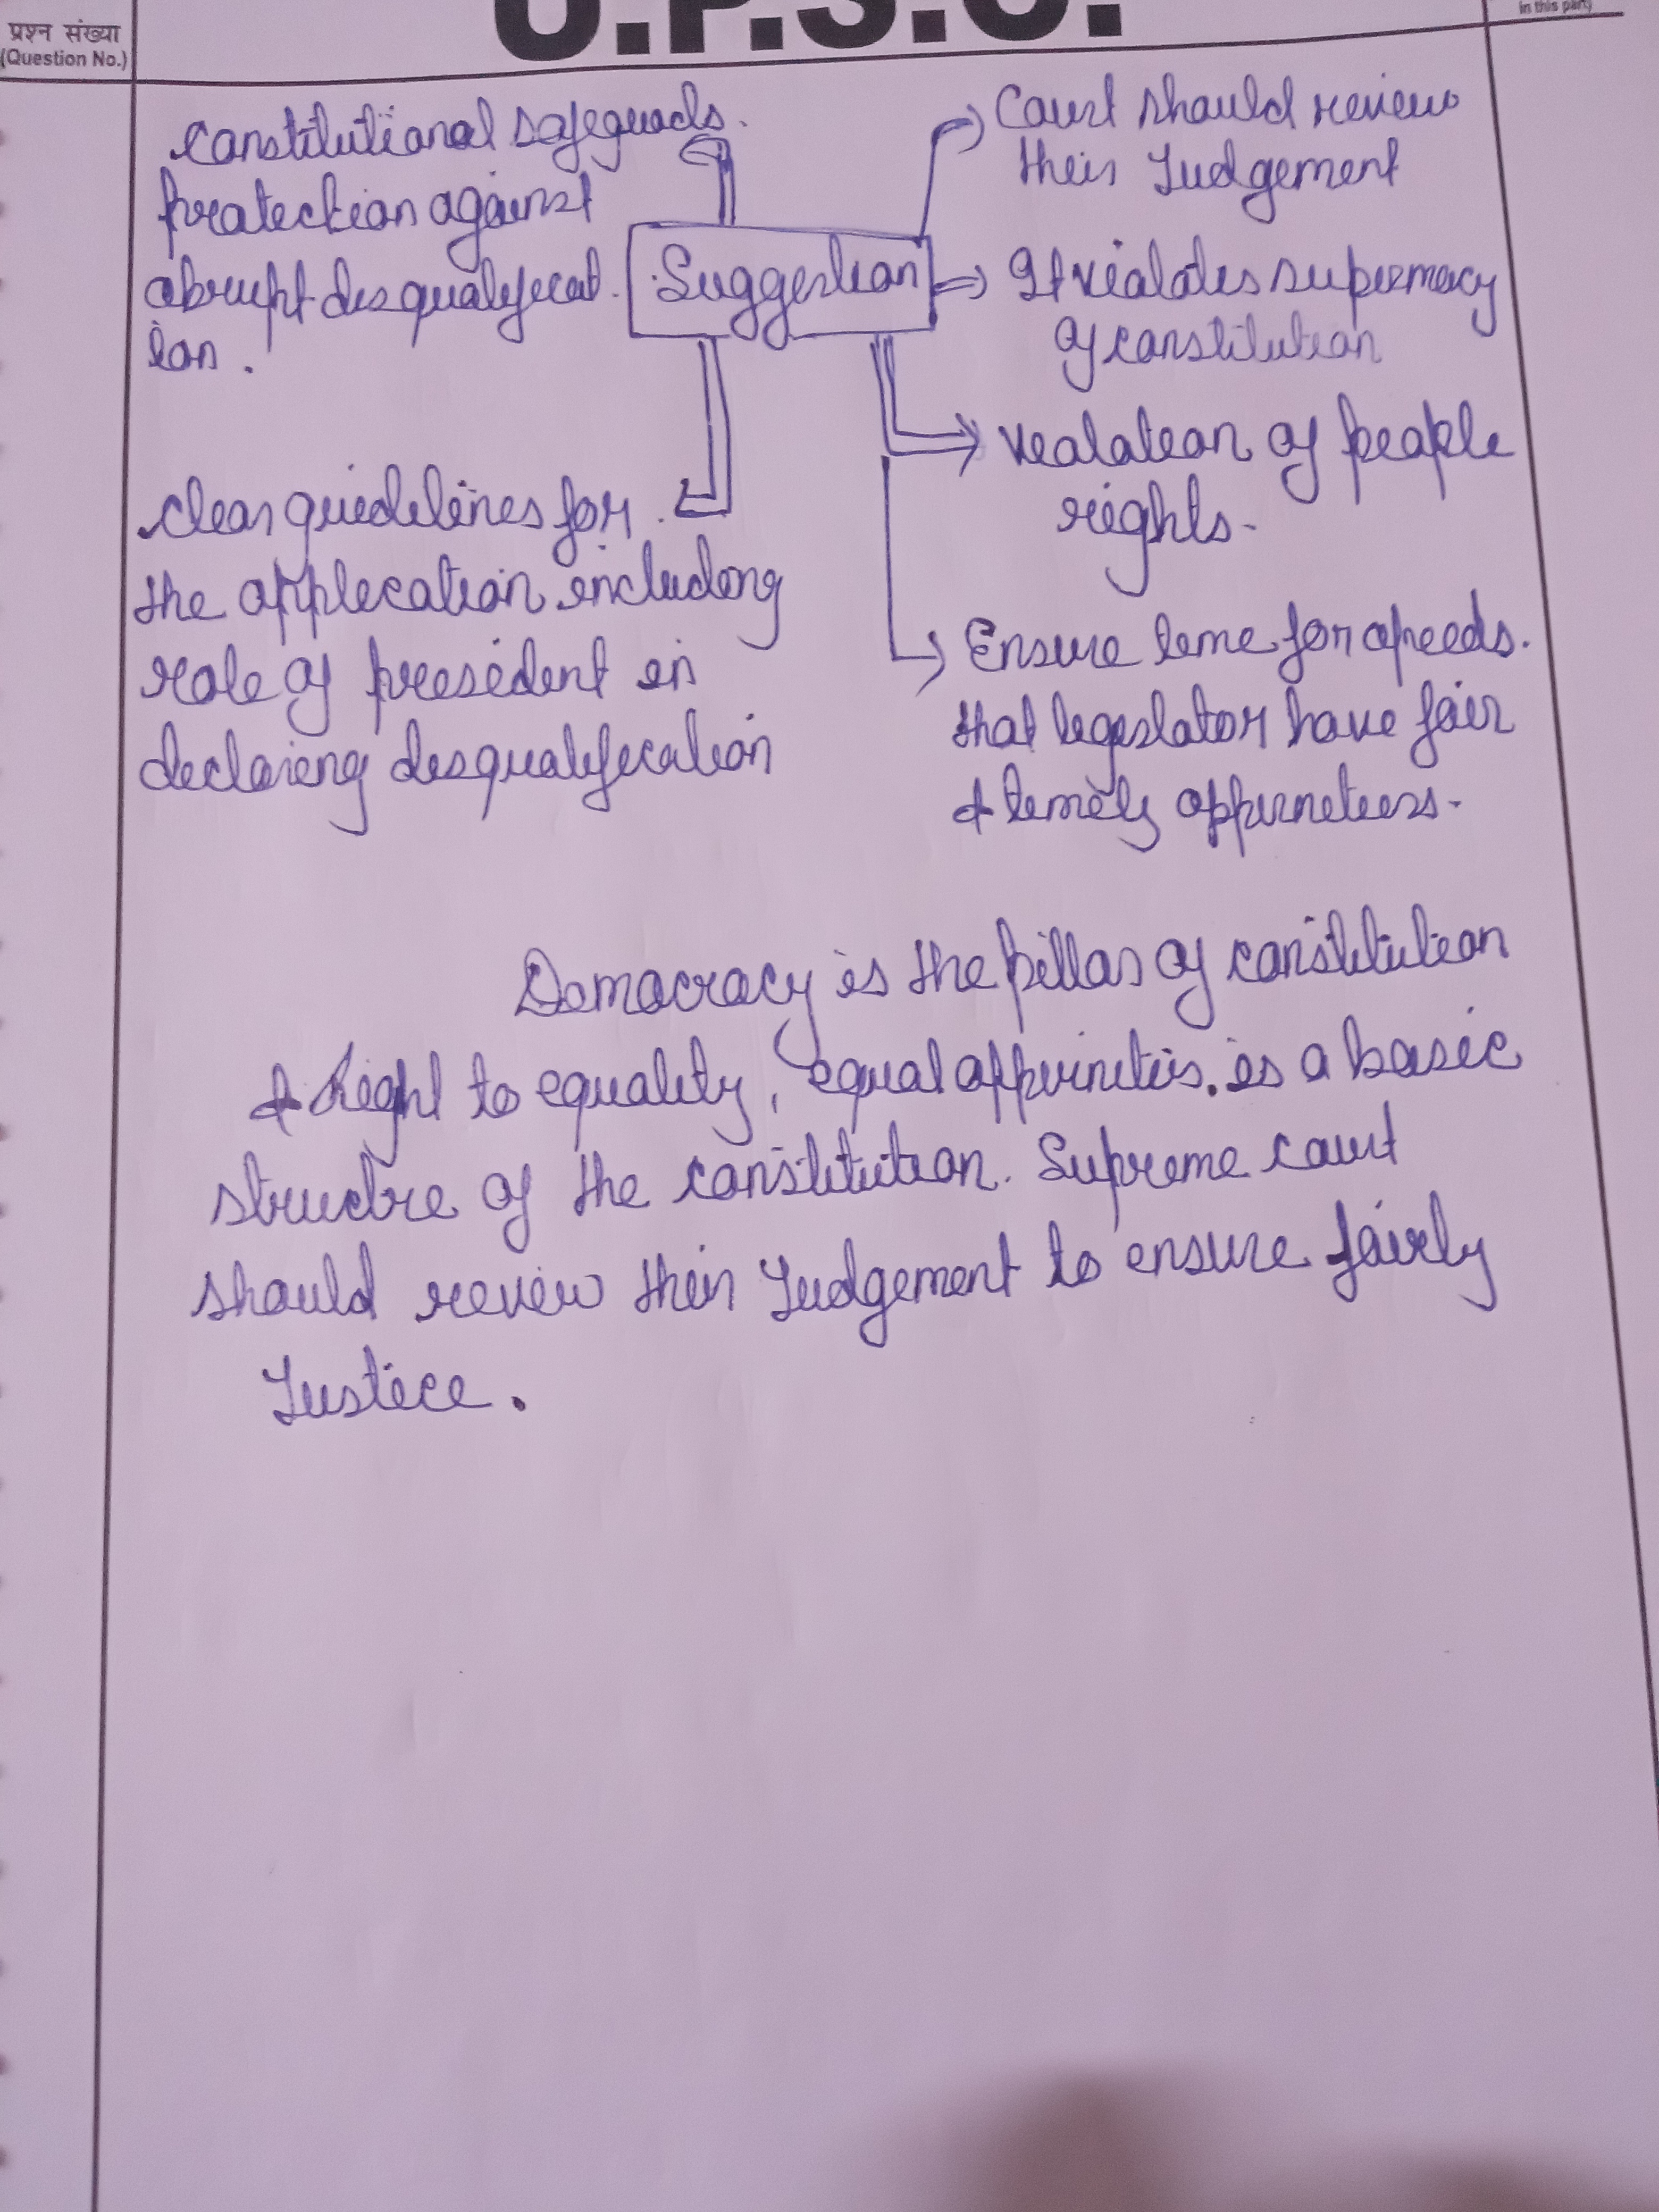 U.P.S.C.
प्रश्न संख्या
(Question No.)
in this part)
constitutional safeguads.
protection against
abrupt disqualificat
ion.
Suggestion
Court should review
their Judgement
It violates supermacy
of constitution
violation of people
rights.
clear guidelines for
the application including
role of president in
declaring disqualification
Ensure time for apeeds.
that legislator have fair
& timely oppurneties.
Democracy is the pillar of constitution
& Right to equality, equal oppurneties. is a basic
structre of the constitution. Supreme court
should review their Judgement to ensure fairly
Justice.